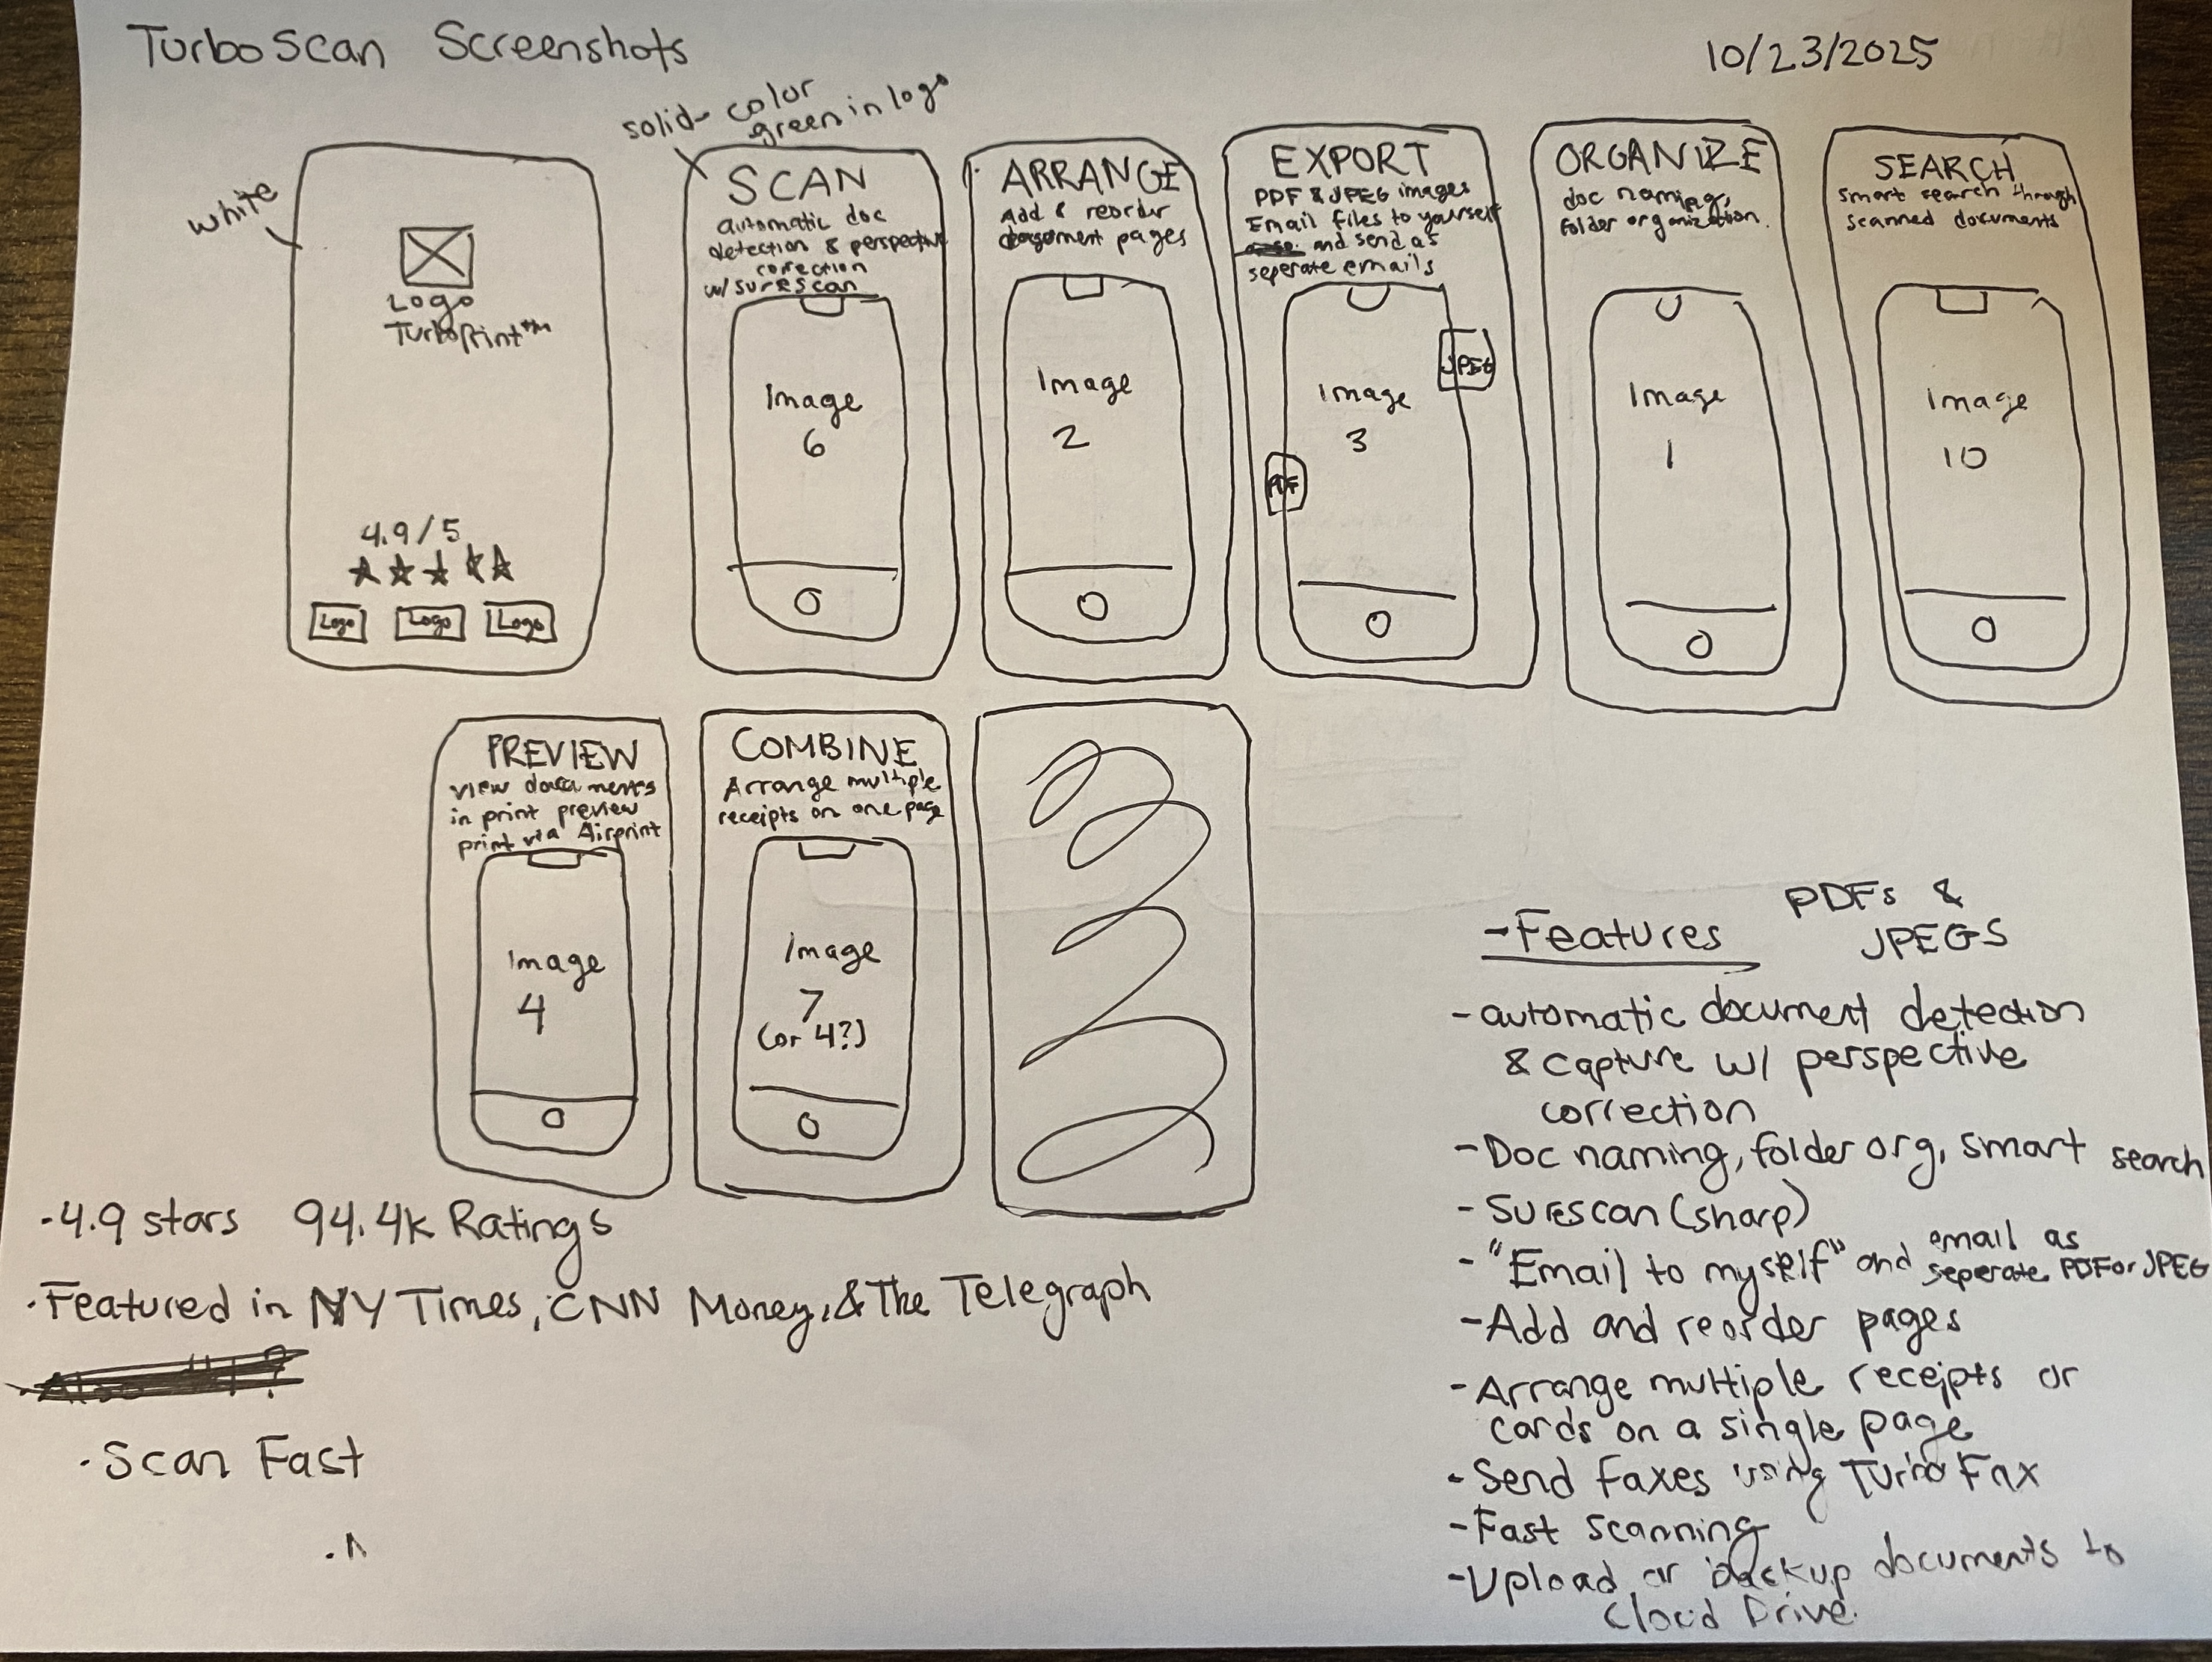 TurboScan Screenshots
10/23/2025
white
solid color
green in logo
Logo
TurboPrint™
4.9/5
Logo Logo Logo
SCAN
automatic doc
detection & perspective
correction
w/ surescan
Image
6
ARRANGE
Add & reorder
document pages
Image
2
EXPORT
PDF & JPEG images
Email files to yourself
and send as
seperate emails
JPEG
Image
3
PDF
ORGANIZE
doc naming,
folder organization.
Image
1
SEARCH
Smart search through
scanned documents
Image
10
PREVIEW
view documents
in print preview
print via Airprint
Image
4
COMBINE
Arrange multiple
receipts on one page
Image
7
(or 4?)
·4.9 stars 94.4k Ratings
·Featured in NY Times, CNN Money, & The Telegraph
·Scan Fast
- Features
PDFs &
JPEGS
- automatic document detection
& capture w/ perspective
correction
- Doc naming, folder org, smart search
- Surescan (sharp)
- "Email to myself" and email as
seperate PDF or JPEG
- Add and reorder pages
- Arrange multiple receipts or
cards on a single page
- Send faxes using Turbo Fax
- Fast scanning
- Upload or backup documents to
Cloud Drive.